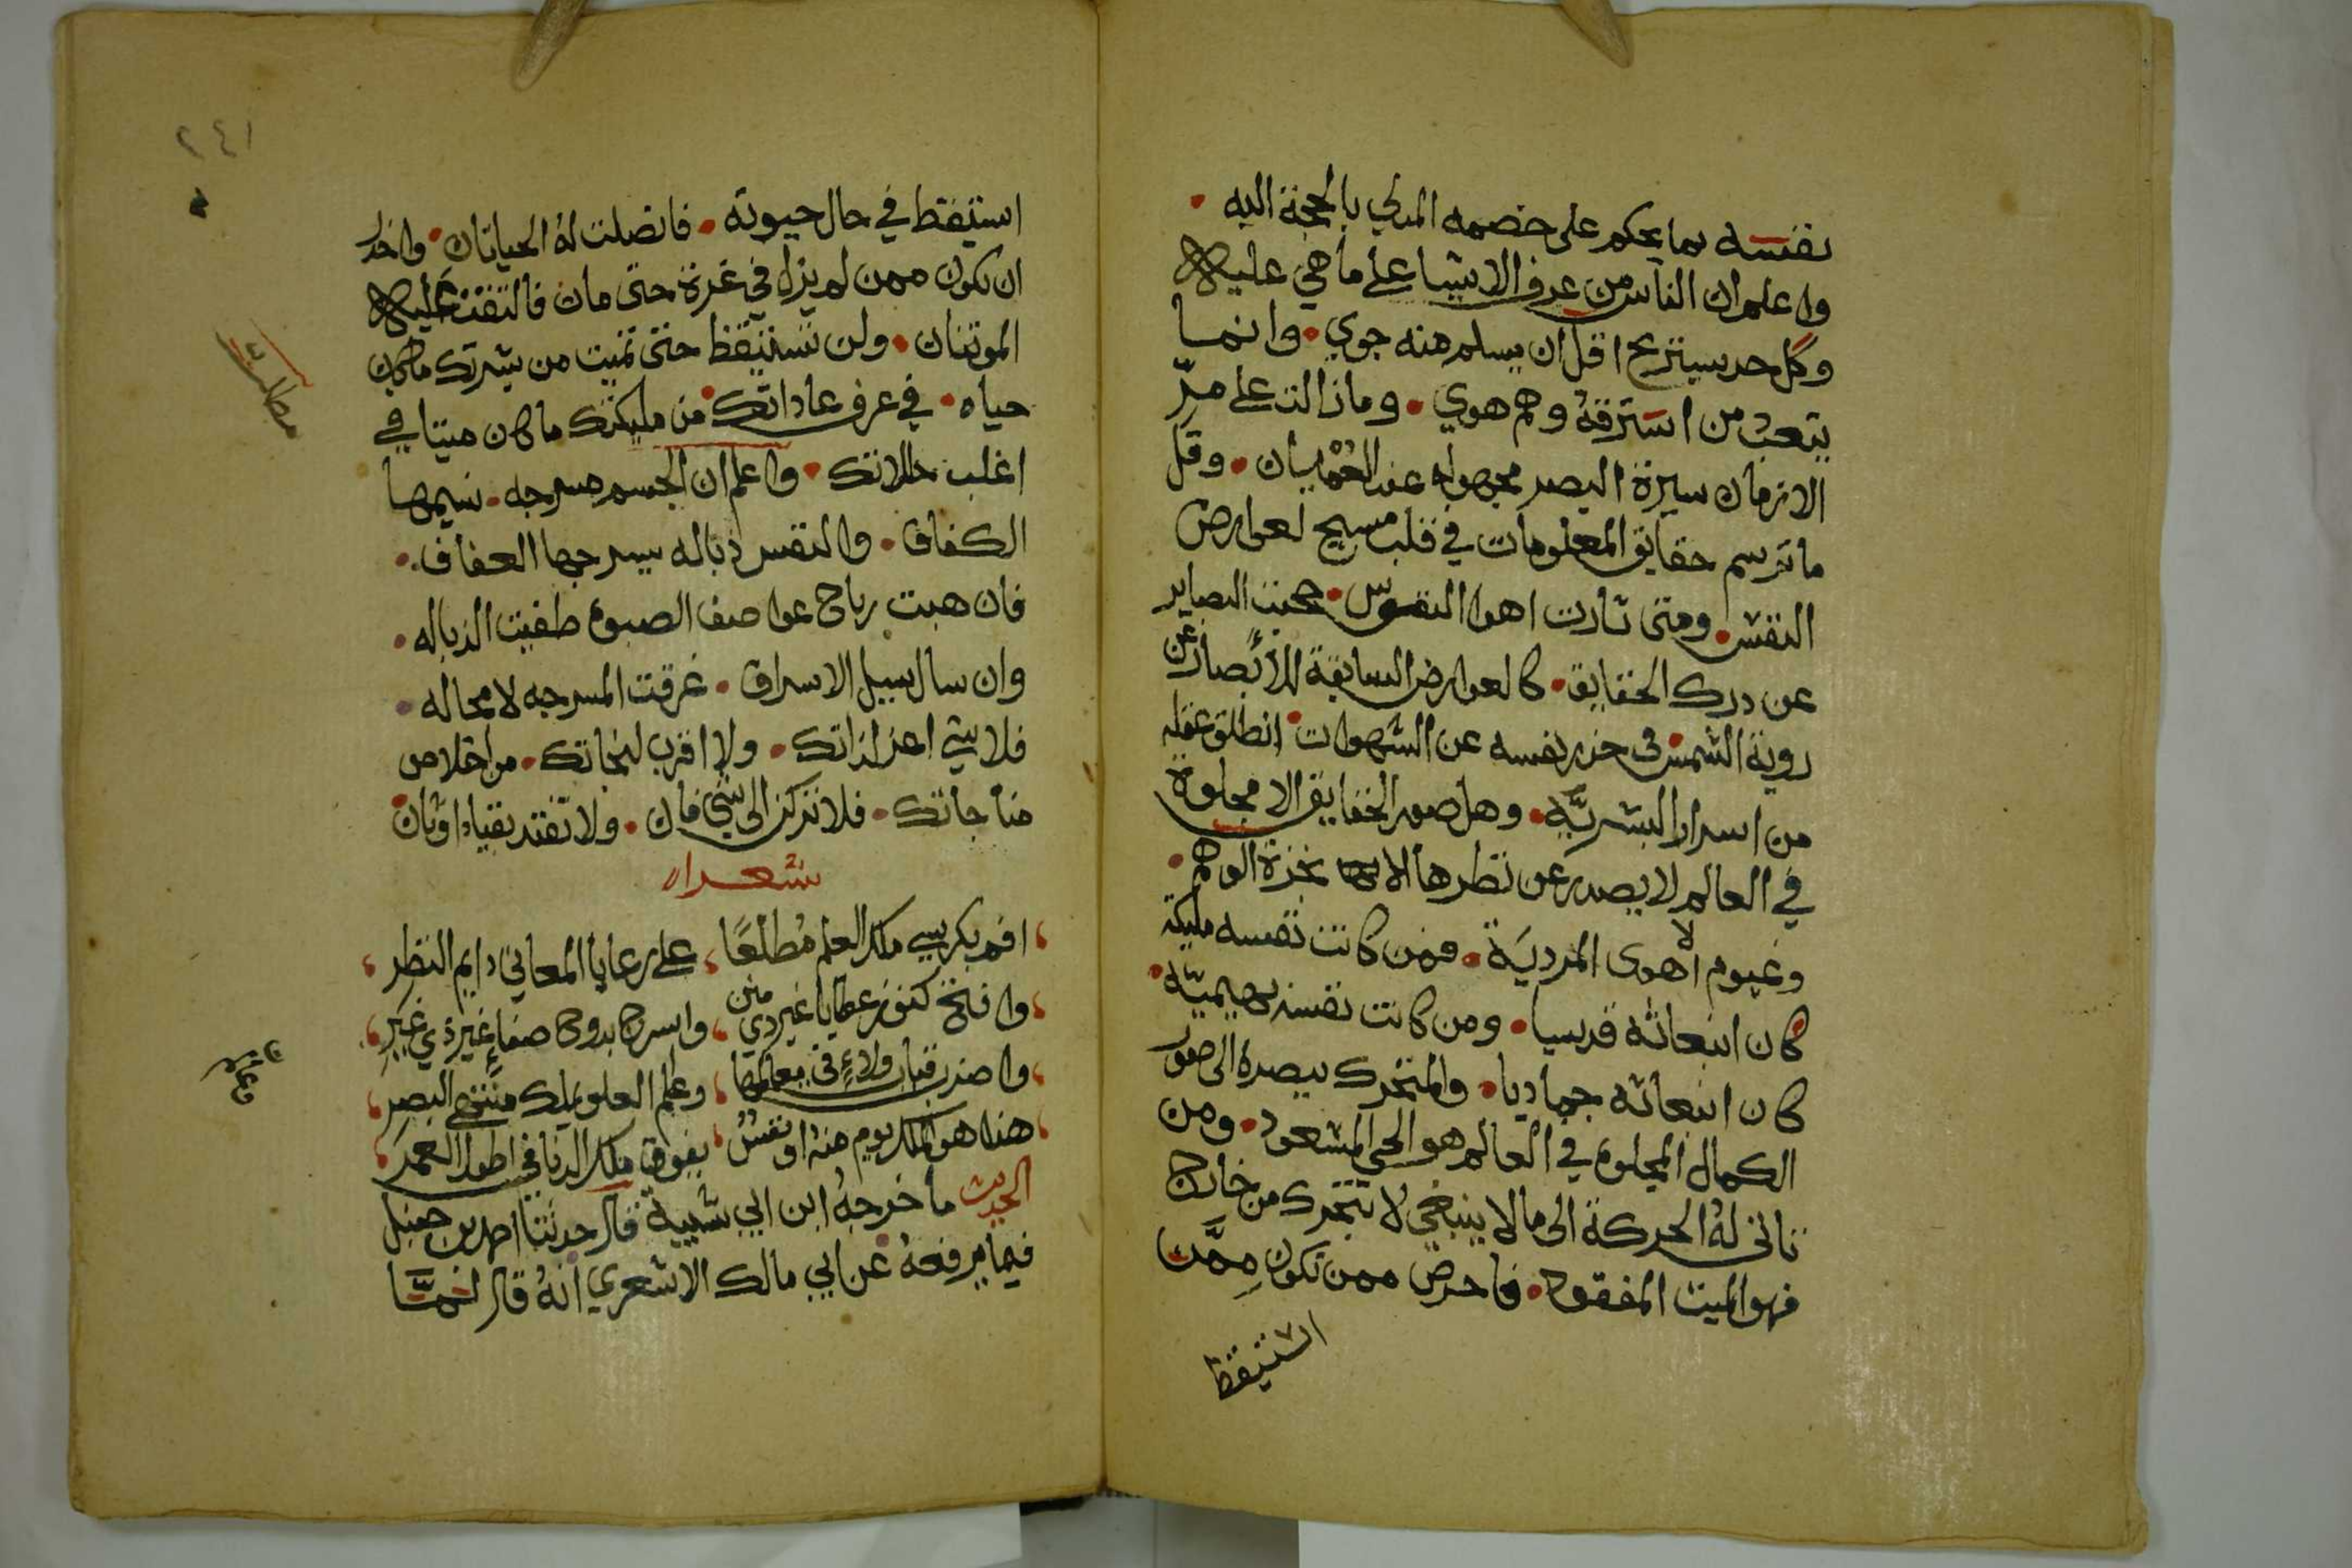 نفسه بما يحكم على خصمه المدلي بالحجة اليه
واعلم ان الناس من عرف الاشيا على ما هي عليه
وكل حد سيتزيح اقل ان يسلم منه جوي وانما
يتعب من استرقه وهم هوي وما زالت على مرّ
الازمان سيرة البصر مجهوله عند العُمْيان وقل
ما ترسم حقايق المعلومات في قلب مسيح لعوارض
النفس ومتى ثارت اهوا النفوس حجبت البصاير
عن درك الحقايق كالعوارض السابقة للأبصار عن
روية الشمس فى حزر نفسه عن الشهوات انطلق عقله
من اسرار البشريّة وهل صور الحقايق الا مجلوة
في العالم لا يصدر عن نظرها الا نحزة الوهم
وغيوم الاهوى المرديَة فمن كانت نفسه مليكة
كان انبعاثه قدسيا ومن كانت نفسه بهيميّة
كان انبعاثه جماديا والمتحرك ببصره الى صور
الكمال المجلوة في العالم هو الحي المشعود ومن
تاتى لهُ الحركة الى ما لا ينبغي لا تتحرك من خارج
فهو الميت المفقود فاحرص ممن تكون مِمَّن
استيقظ
٢٤١
استيقظ في حال حيوته فاتصلت لهُ الحياتان واحذر
ان تكون ممن لم يزل في غرة حتى مات فالتفت عليه
الموتتان ولن تستيقظ حتى تميت من بشرتك ما كان
حياه في عرف عاداتك من مليكتك ما كان ميتا في
اغلب حالاتك واعلم ان الجسم مسرجه نسيمها
الكفاف والنفس ذباله يسرجها العفاف
فان هبت رياح عواصف الصبوة طفيت الذباله
وان سال سيل الاسراف غرقت المسرجه لا محاله
فلا شي اعز لذاتك ولا اقرب لنجاتك من اخلاص
مناجاتك فلا تركن الى شي فان ولا تقتد بقياد اوثان
شعرا
اقم بكرسي ملك العلم مُطلعًا على رعايا المعاني دايم النظر
وافتح كنوز عطايا غير ذي منن واسرح بدوح صفاءٍ غير ذي غيَرِ
واضرب قباب ولاءٍ فى معالمها وعلم العلو يملك منتهى البصر
هذا هو الملك يوم منهُ او نفسٌ يفوق ملك الدنا في اطول العمر
الحديث ما خرجهُ ابن ابي شيبة قال حدثنا احمد بن حنبل
فيما يرفعهُ عن ابي مالك الاشعري انهُ قال انمَّا